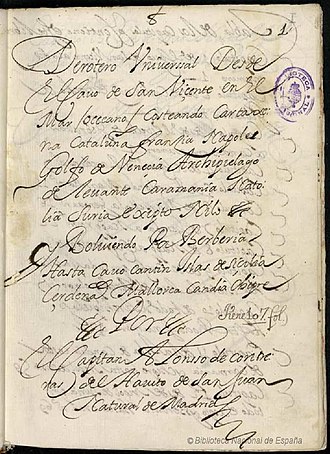 8
1
Derotero Vniversal Desde
El Cauo de San Vicente en El
Mar occeano / Costeando Cartaxe
na Cataluña françia Napoles
Golfo de Venecia Archipielago
de leuante Caramania Nato
lia Suria exipto Nilo
Bolviendo Por Berberia
Hasta Cauo cantin Islas de Sicilia
Çerdeña Mallorca Candia chipre
Por
tiene 107 fol
El Capitan Alonso de contre
ras del Hauito de San Juan
Natural de Madrid
© Biblioteca Nacional de España